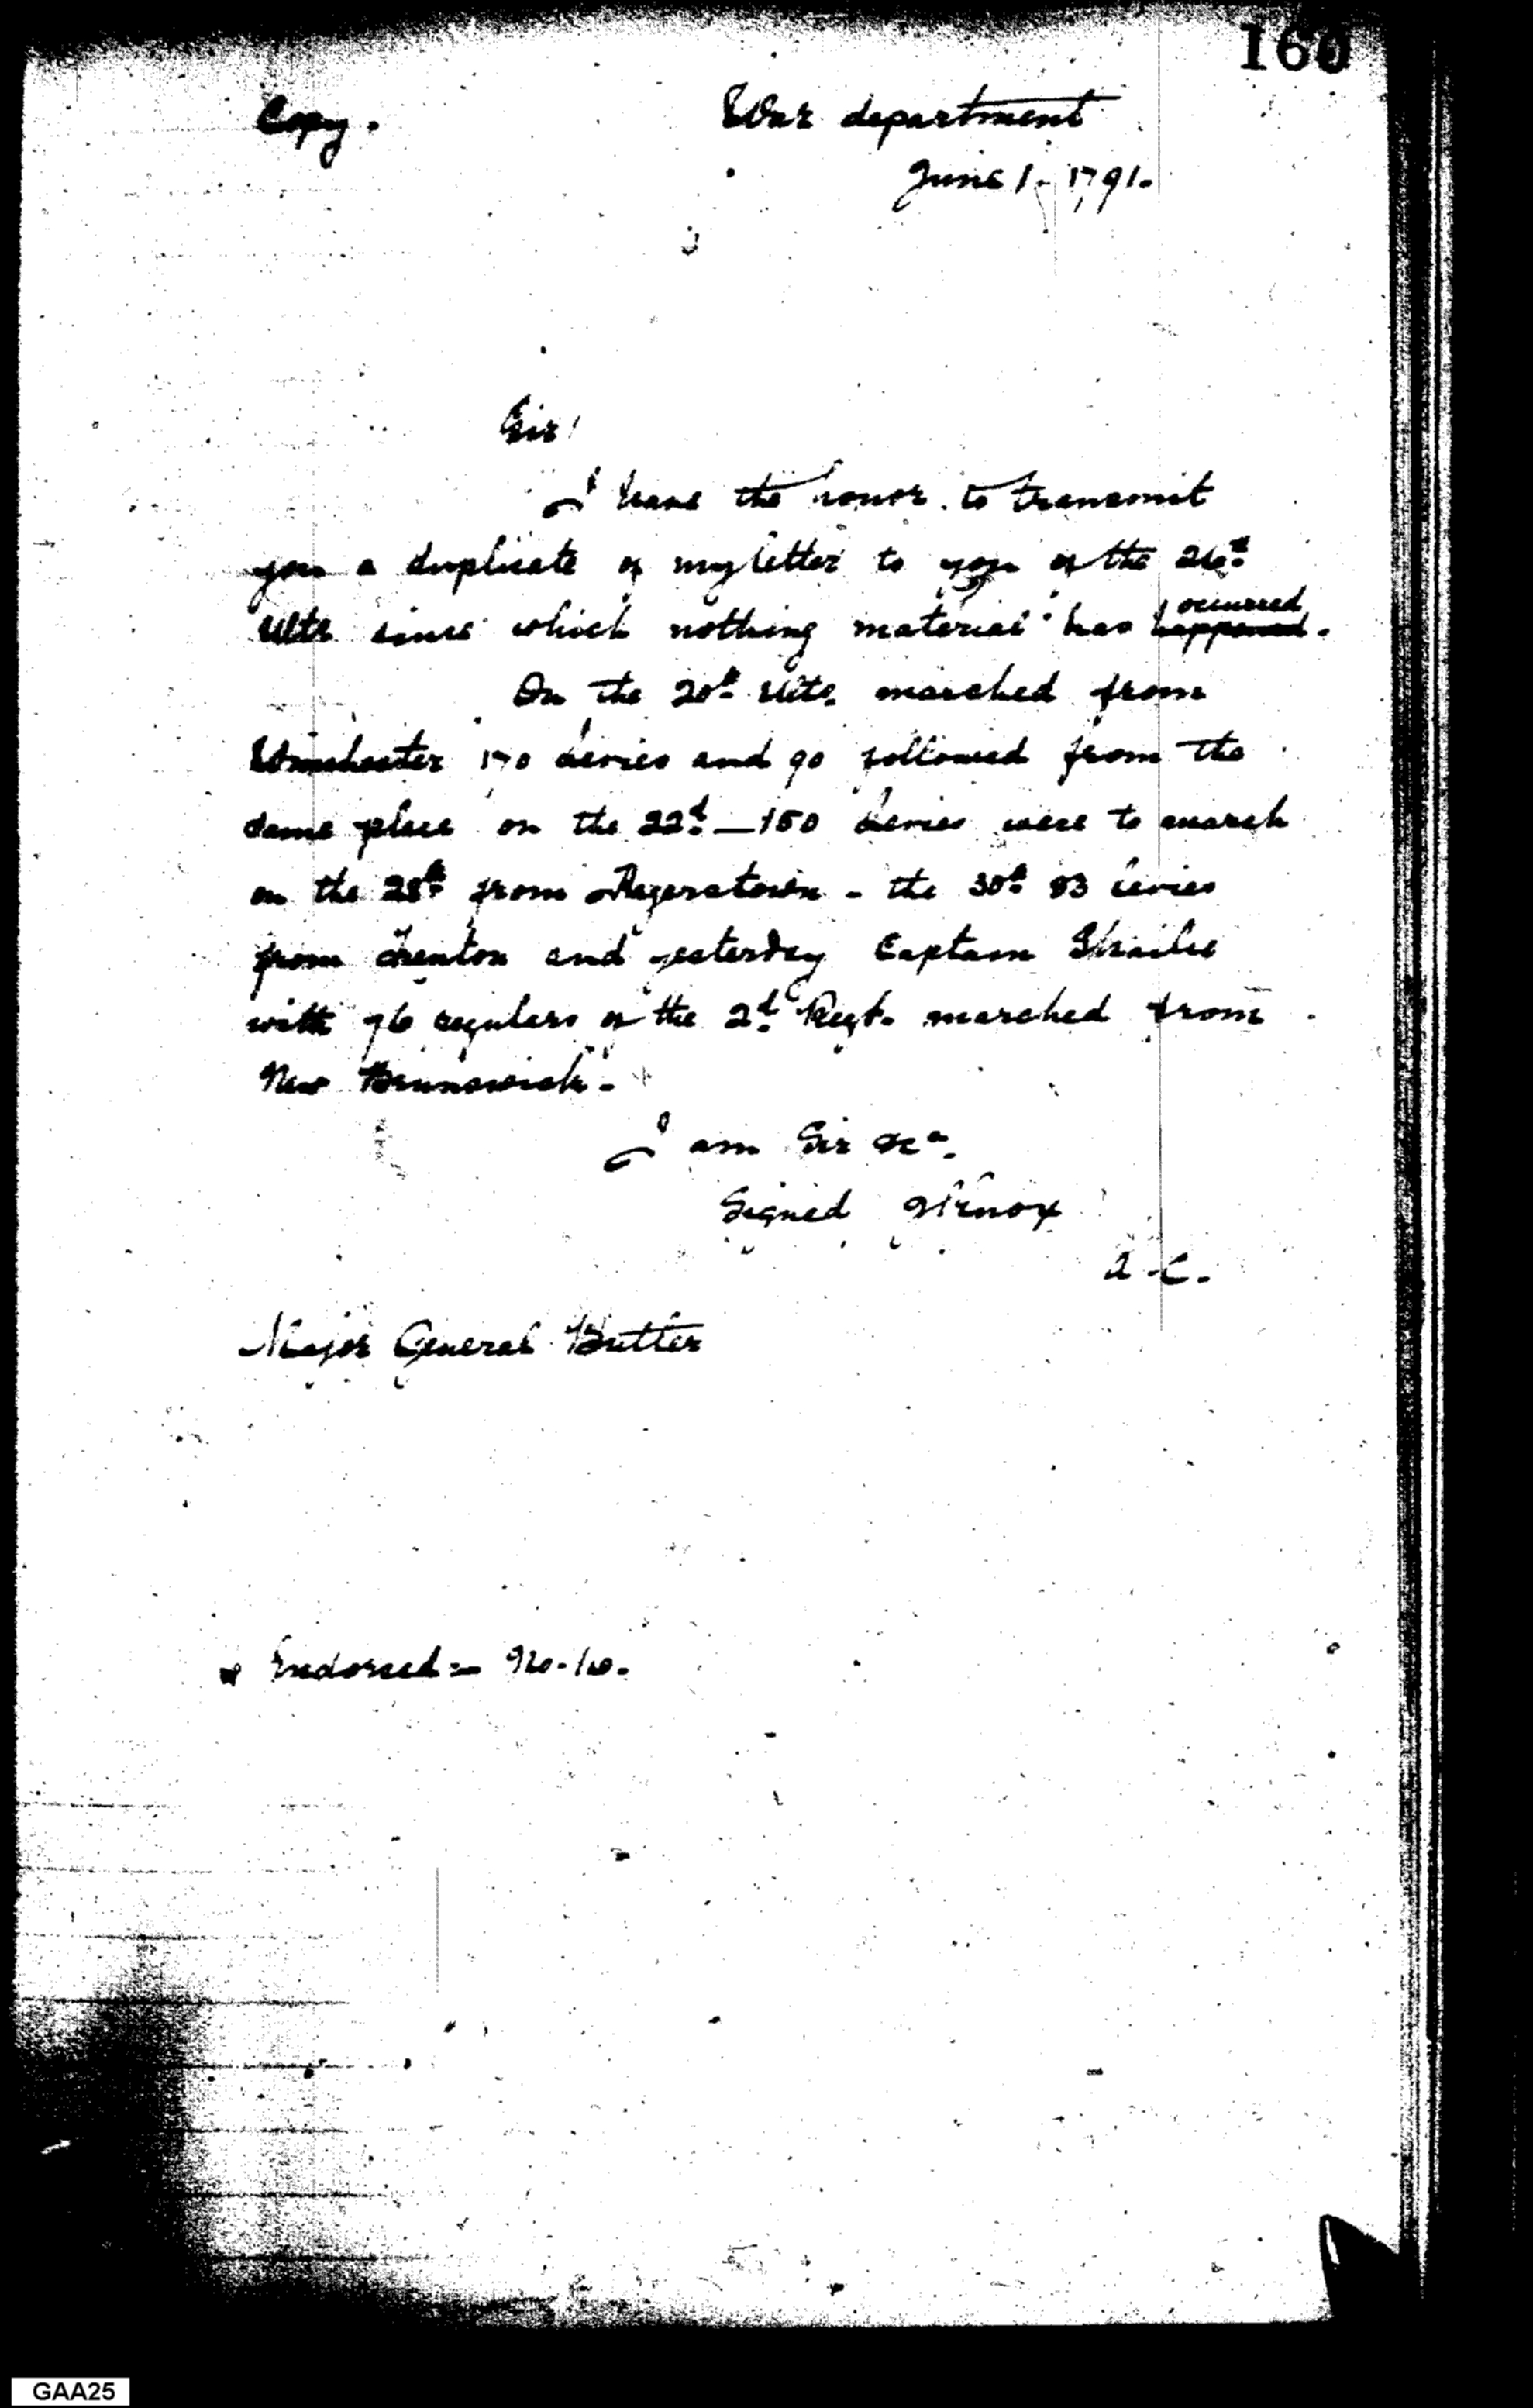 160
Copy.
War department
June 1. 1791.
Sir!
I have the honor to transmit
you a duplicate of my letter to you of the 26th
Ulto since which nothing material has happened occurred.
On the 20th Ulto. marched from
Winchester 170 levies and 90 followed from the
same place on the 22d — 150 levies were to march
on the 28th from Hagerstown - the 30th 83 levies
from Trenton and yesterday Captain
with 76 regulars of the 2d Regt. marched from
New Brunswick -
I am Sir &ca.
Signed HKnox
Major General Butler
Endorsed = No. 10.
GAA25